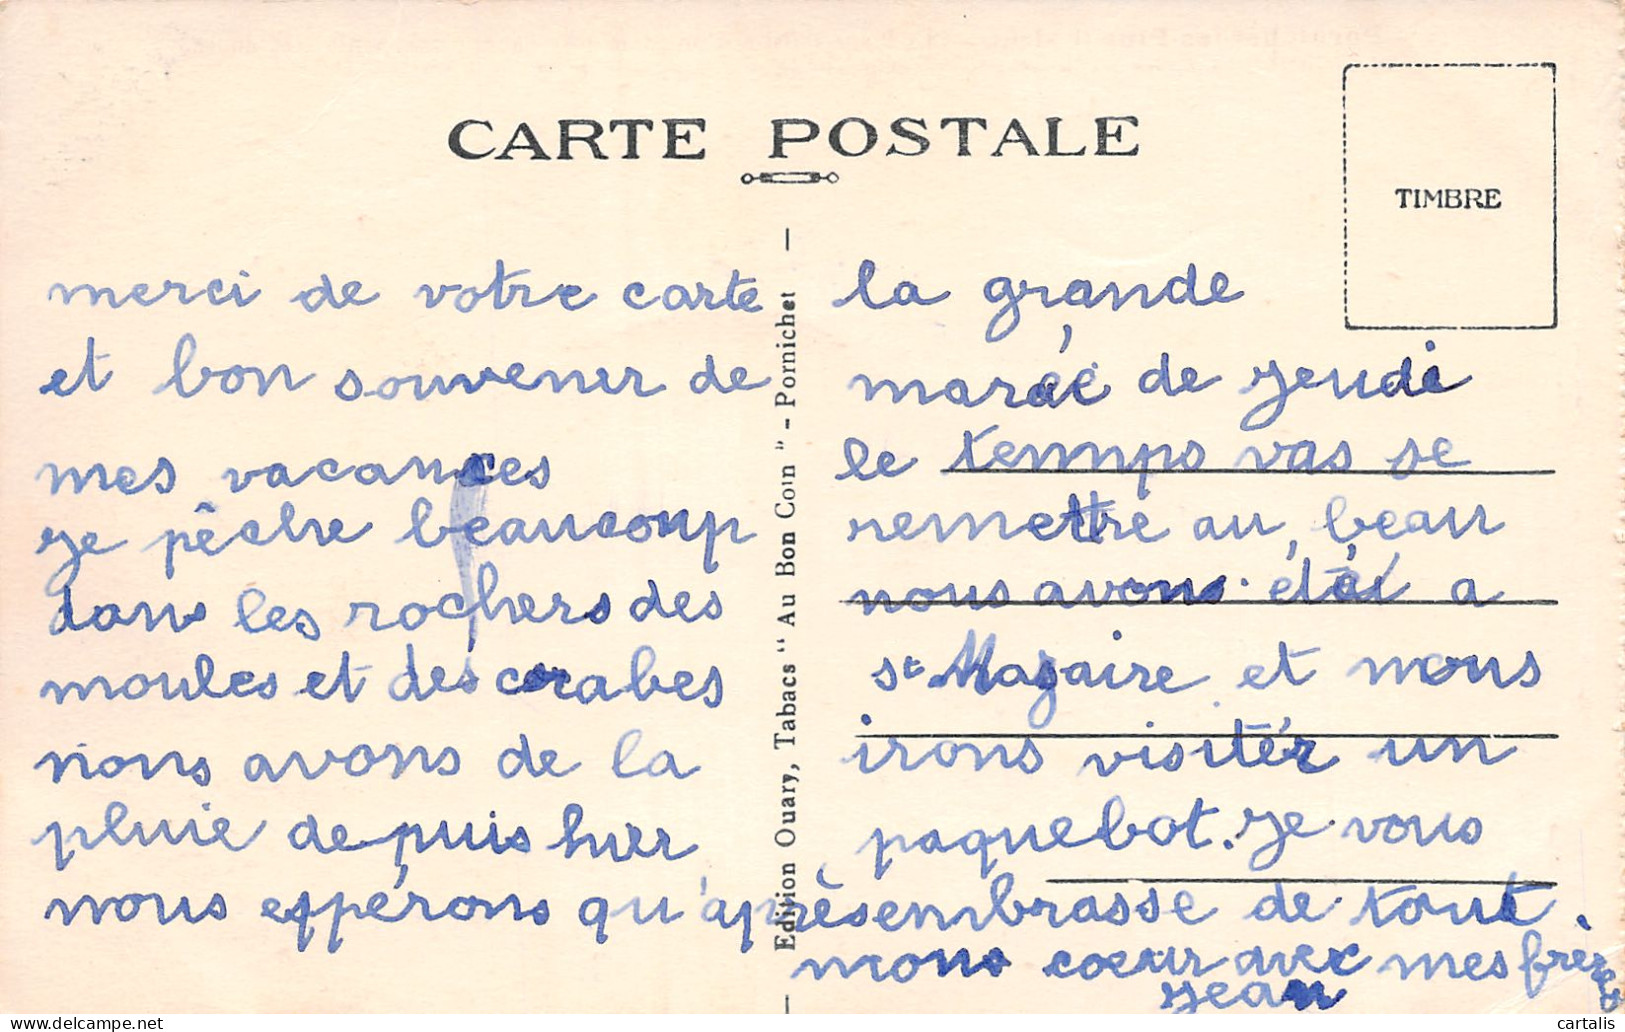 CARTE POSTALE
TIMBRE
merci de votre carte
et bon souvenir de
mes vacances
je pêche beaucoup
dans les rochers des
moules et des crabes
nous avons de la
pluie de puis hier
nous espérons qu'après
Edition Ouary, Tabacs "Au Bon Coin" - Pornichet
la grande
marée de jeudi
le temps vas se
remettre au beau
nous avons été a
st Nazaire et nous
irons visiter un
paquebot. je vous
embrasse de tout
mon coeur avec mes frères
jean
cartalis